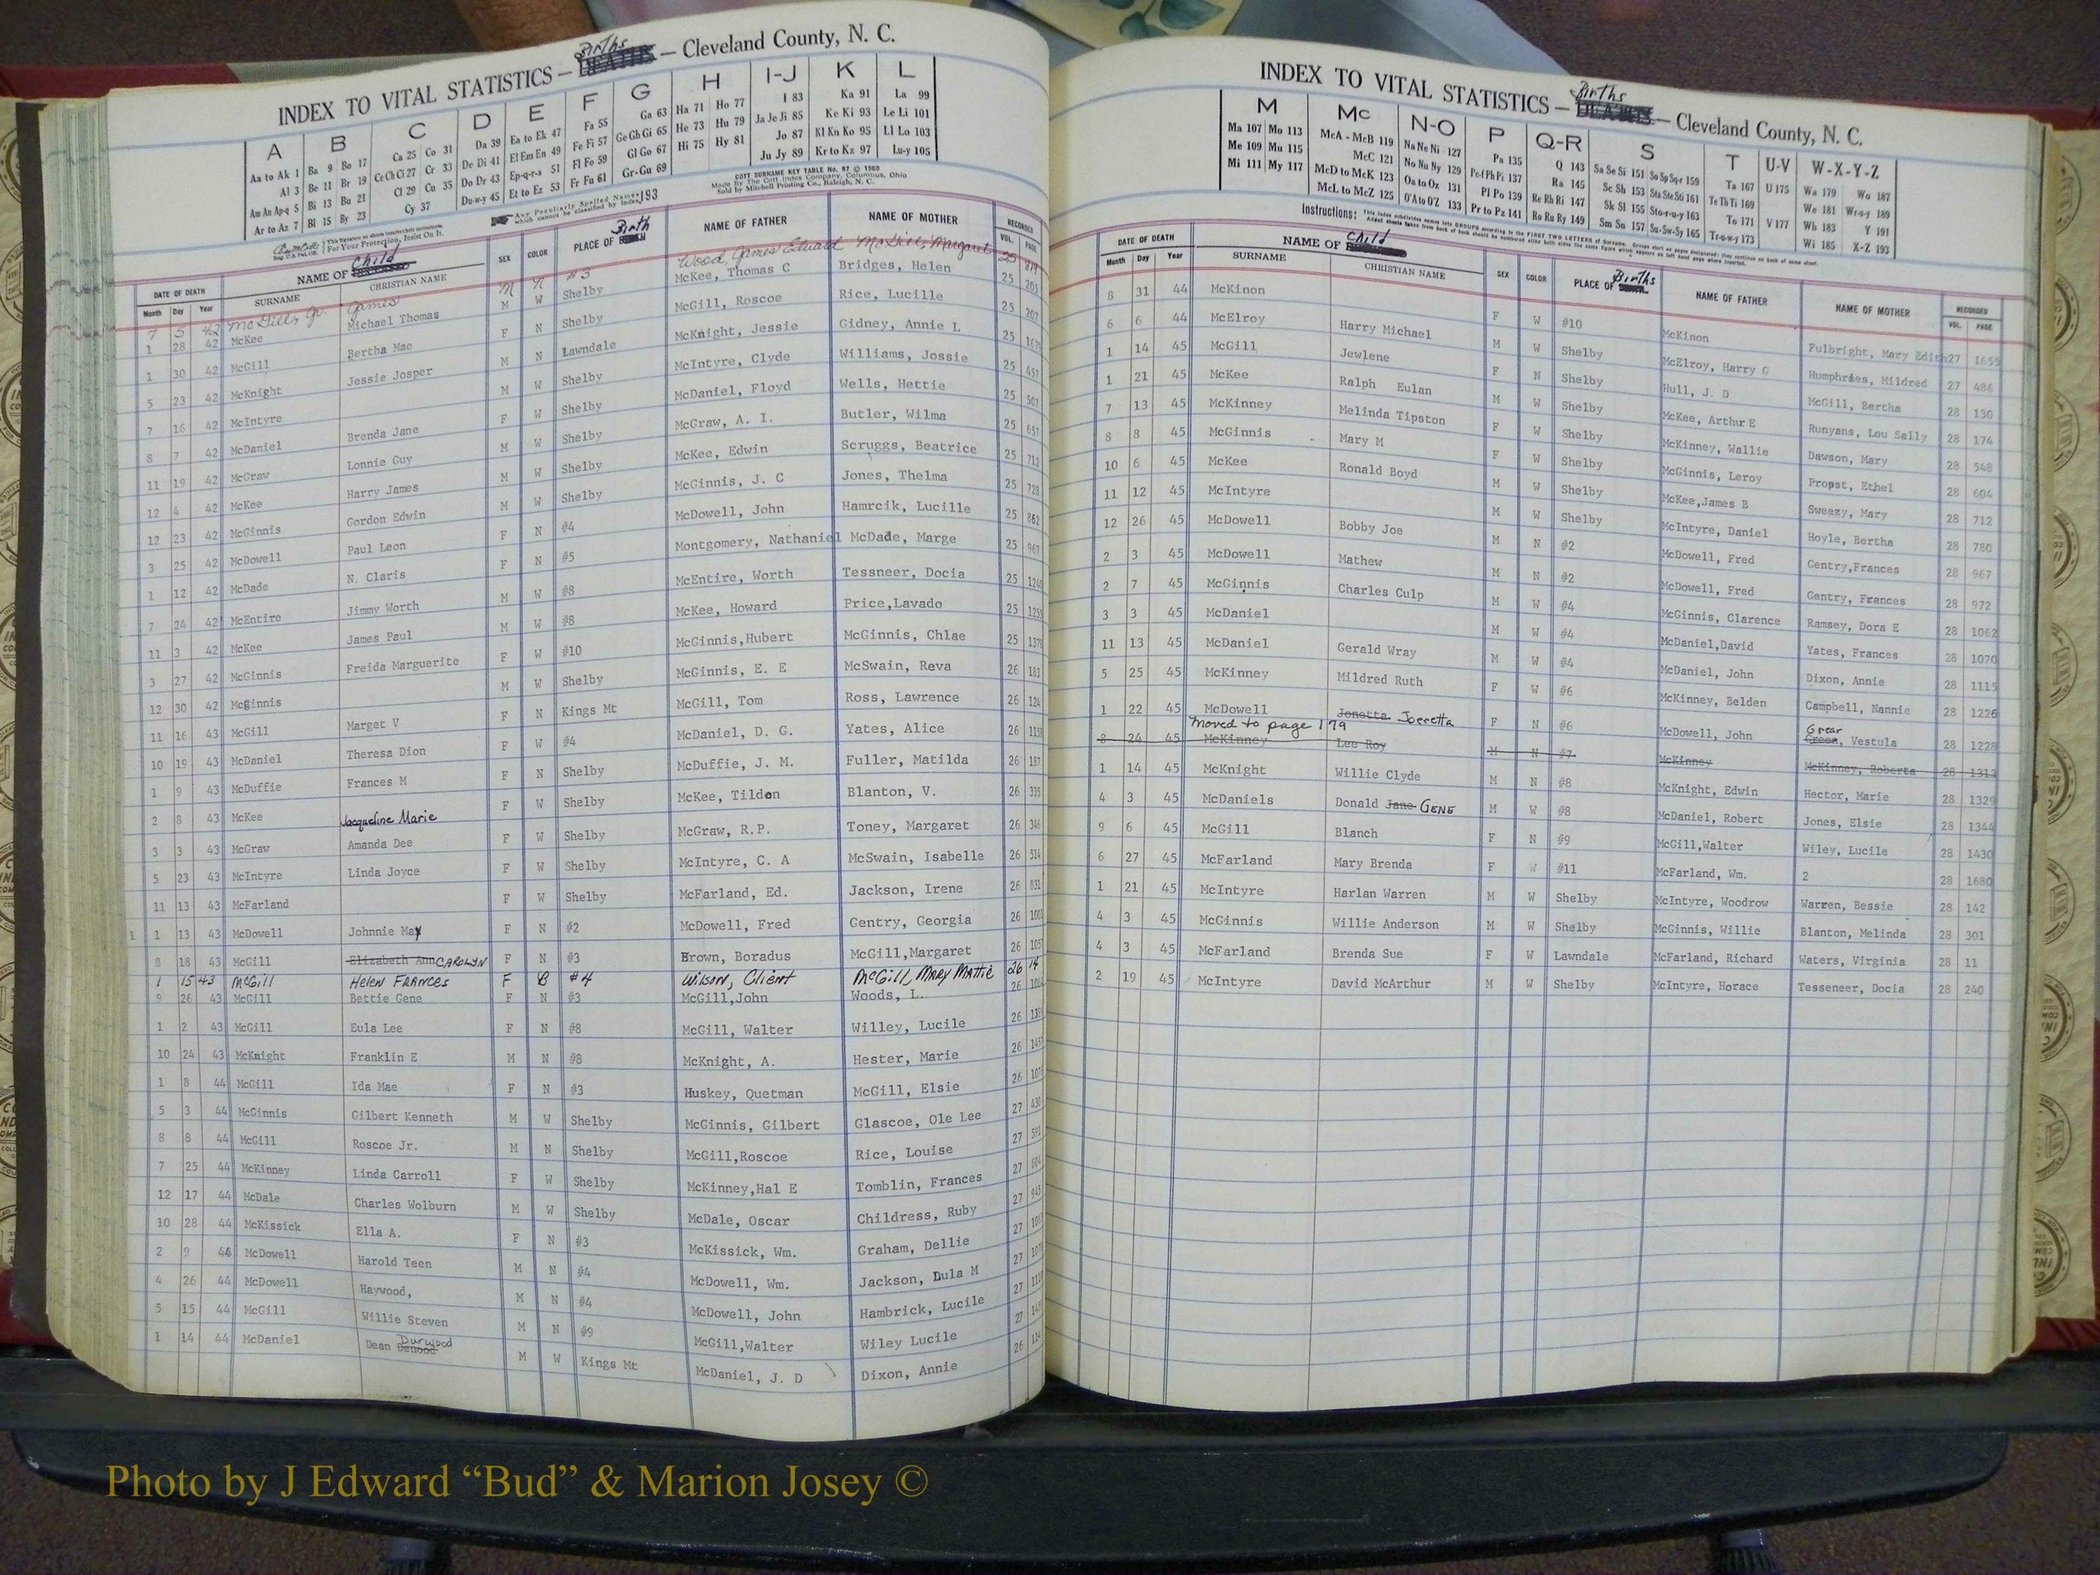 INDEX TO VITAL STATISTICS — Births DEATHS — Cleveland County, N. C.
A B C D E F G H I-J K L
Aa to Ak 1 Ba 9 Bo 17 Ca 25 Co 31 Da 39 Ea to Ek 47 Fa 55 Ga 63 Ha 71 Ho 77 I 83 Ka 91 La 99
Al 3 Be 11 Br 19 Ce Ch Ci 27 Cr 33 De Di 41 El Em En 49 Fe Fi 57 Ge Gh Gi 65 He 73 Hu 79 Ja Je Ji 85 Ke Ki 93 Le Li 101
Am An Ap-q 5 Bi 13 Bu 21 Cl 29 Cu 35 Do Dr 43 Ep-q-r-s 51 Fl Fo 59 Gl Go 67 Hi 75 Hy 81 Jo 87 Kl Kn Ko 95 Ll Lo 103
Ar to Az 7 Bl 15 By 23 Cy 37 Du-w-y 45 Et to Ez 53 Fr Fu 61 Gr-Gu 69 Ju Jy 89 Kr to Kz 97 Lu-y 105
Any Peculiarly Spelled Names which cannot be classified by Index 193
COTT SURNAME KEY TABLE No. 97 © 1960
Made By The Cott Index Company, Columbus, Ohio
Sold by Mitchell Printing Co., Raleigh, N. C.
For Your Protection, Insist On It.
DATE OF DEATH NAME OF Child SEX COLOR PLACE OF Birth NAME OF FATHER NAME OF MOTHER RECORDED
Month Day Year SURNAME CHRISTIAN NAME VOL. PAGE
7 5 42 McGills Jr. James M N #3 Wood, James Edward McGills, Margaret 25
1 28 42 McKee Michael Thomas M W Shelby McKee, Thomas C Bridges, Helen 25 205
1 30 42 McGill Bertha Mae F N Shelby McGill, Roscoe Rice, Lucille 25 207
5 23 42 McKnight Jessie Josper M N Lawndale McKnight, Jessie Gidney, Annie L 25
7 16 42 McIntyre M W Shelby McIntyre, Clyde Williams, Jossie 25 457
8 7 42 McDaniel Brenda Jane F W Shelby McDaniel, Floyd Wells, Hettie 25 507
11 19 42 McGraw Lonnie Guy M W Shelby McGraw, A. I. Butler, Wilma 25 657
12 4 42 McKee Harry James M W Shelby McKee, Edwin Scruggs, Beatrice 25 712
12 23 42 McGinnis Gordon Edwin M W Shelby McGinnis, J. C Jones, Thelma 25 728
3 25 42 McDowell Paul Leon F N #4 McDowell, John Hamrcik, Lucille 25 862
1 12 42 McDade N. Claris F N #5 Montgomery, Nathaniel McDade, Marge 25 967
7 24 42 McEntire Jimmy Worth M W #8 McEntire, Worth Tessneer, Docia 25
11 3 42 McKee James Paul M W #8 McKee, Howard Price,Lavado 25
3 27 42 McGinnis Freida Marguerite F W #10 McGinnis,Hubert McGinnis, Chlae 25
12 30 42 McGinnis M W Shelby McGinnis, E. E McSwain, Reva 26 183
11 16 43 McGill Marget V F N Kings Mt McGill, Tom Ross, Lawrence 26 124
10 19 43 McDaniel Theresa Dion F W #4 McDaniel, D. G. Yates, Alice 26
1 9 43 McDuffie Frances M F N Shelby McDuffie, J. M. Fuller, Matilda 26 187
2 8 43 McKee Jacqueline Marie F W Shelby McKee, Tildon Blanton, V. 26 335
3 3 43 McGraw Amanda Dee F W Shelby McGraw, R.P. Toney, Margaret 26 346
5 23 43 McIntyre Linda Joyce F W Shelby McIntyre, C. A McSwain, Isabelle 26 514
11 13 43 McFarland F W Shelby McFarland, Ed. Jackson, Irene 26 831
1 1 13 43 McDowell Johnnie May F N #2 McDowell, Fred Gentry, Georgia 26
8 18 43 McGill Elizabeth Ann CAROLYN F N #3 Brown, Boradus McGill,Margaret 26
1 15 43 McGill HELEN FRANCES F B #4 WILSON, Client McGill, MARY MATTIE 26 14
9 26 43 McGill Bettie Gene F N #3 McGill,John Woods, L. 26
1 2 43 McGill Eula Lee F N #8 McGill, Walter Willey, Lucile 26
10 24 43 McKnight Franklin E M N #8 McKnight, A. Hester, Marie 26
1 8 44 McGill Ida Mae F N #3 Huskey, Quetman McGill, Elsie 26
5 3 44 McGinnis Gilbert Kenneth M W Shelby McGinnis, Gilbert Glascoe, Ole Lee 27 430
8 8 44 McGill Roscoe Jr. M N Shelby McGill,Roscoe Rice, Louise 27
7 25 44 McKinney Linda Carroll F W Shelby McKinney,Hal E Tomblin, Frances 27 604
12 17 44 McDale Charles Wolburn M W Shelby McDale, Oscar Childress, Ruby 27
10 28 44 McKissick Ella A. F N #3 McKissick, Wm. Graham, Dellie 27
2 9 44 McDowell Harold Teen M N #4 McDowell, Wm. Jackson, Dula M 27
4 26 44 McDowell Haywood, M N #4 McDowell, John Hambrick, Lucile 27
5 15 44 McGill Willie Steven M N #9 McGill,Walter Wiley Lucile 27
1 14 44 McDaniel Dean Denood Durwood M W Kings Mt McDaniel, J. D Dixon, Annie 26 114
INDEX TO VITAL STATISTICS — Births DEATHS — Cleveland County, N. C.
M Mc N-O P Q-R S T U-V W-X-Y-Z
Ma 107 Mo 113 McA - McB 119 Na Ne Ni 127 Pa 135 Q 143 Sa Se Si 151 So Sp Sq-r 159 Ta 167 U 175 Wa 179 Wo 187
Me 109 Mu 115 McC 121 No Nu Ny 129 Pe-f Ph Pi 137 Ra 145 Sc Sh 153 Sta Ste Sti 161 Te Th Ti 169 We 181 Wr-u-y 189
Mi 111 My 117 McD to McK 123 Oa to Oz 131 Pl Po 139 Re Rh Ri 147 Sk Sl 155 Sto-r-u-y 163 To 171 V 177 Wh 183 Y 191
McL to McZ 125 O'A to O'Z 133 Pr to Pz 141 Ro Ru Ry 149 Sm Sn 157 Su-Sw-Sy 165 Tr-u-w-y 173 Wi 185 X-Z 193
Instructions:
DATE OF DEATH NAME OF Child SEX COLOR PLACE OF Births NAME OF FATHER NAME OF MOTHER RECORDED
Month Day Year SURNAME CHRISTIAN NAME VOL. PAGE
8 31 44 McKinon F W #10 McKinon Fulbright, Mary Edith 27 1655
6 6 44 McElroy Harry Michael M W Shelby McElroy, Harry G Humphries, Mildred 27 486
1 14 45 McGill Jewlene F N Shelby Hull, J. D McGill, Bertha 28 130
1 21 45 McKee Ralph Eulan M W Shelby McKee, Arthur E Runyans, Lou Sally 28 174
7 13 45 McKinney Melinda Tipston F W Shelby McKinney, Wallie Dawson, Mary 28 548
8 8 45 McGinnis Mary M F W Shelby McGinnis, Leroy Propst, Ethel 28 604
10 6 45 McKee Ronald Boyd M W Shelby McKee,James B Sweezy, Mary 28 712
11 12 45 McIntyre M W Shelby McIntyre, Daniel Hoyle, Bertha 28 780
12 26 45 McDowell Bobby Joe M N #2 McDowell, Fred Gentry,Frances 28 967
2 3 45 McDowell Mathew M N #2 McDowell, Fred Gentry, Frances 28 972
2 7 45 McGinnis Charles Culp M W #4 McGinnis, Clarence Ramsey, Dora E 28 1062
3 3 45 McDaniel M W #4 McDaniel,David Yates, Frances 28 1070
11 13 45 McDaniel Gerald Wray M W #4 McDaniel, John Dixon, Annie 28 1115
5 25 45 McKinney Mildred Ruth F W #6 McKinney, Belden Campbell, Nannie 28 1226
1 22 45 McDowell Jonetta Joeretta F N #6 McDowell, John Green Grear, Vestula 28 1228
moved to page 179
8 24 45 McKinney Lee Roy M N #7 McKinney McKinney, Roberta 28 1313
1 14 45 McKnight Willie Clyde M N #8 McKnight, Edwin Hector, Marie 28 1329
4 3 45 McDaniels Donald Jane GENE M W #8 McDaniel, Robert Jones, Elsie 28 1344
9 6 45 McGill Blanch F N #9 McGill,Walter Wiley, Lucile 28 1430
6 27 45 McFarland Mary Brenda F W #11 McFarland, Wm. 2 28 1680
1 21 45 McIntyre Harlan Warren M W Shelby McIntyre, Woodrow Warren, Bessie 28 142
4 3 45 McGinnis Willie Anderson M W Shelby McGinnis, Willie Blanton, Melinda 28 301
4 3 45 McFarland Brenda Sue F W Lawndale McFarland, Richard Waters, Virginia 28 11
2 19 45 McIntyre David McArthur M W Shelby McIntyre, Horace Tesseneer, Docia 28 240
Photo by J Edward “Bud” & Marion Josey ©